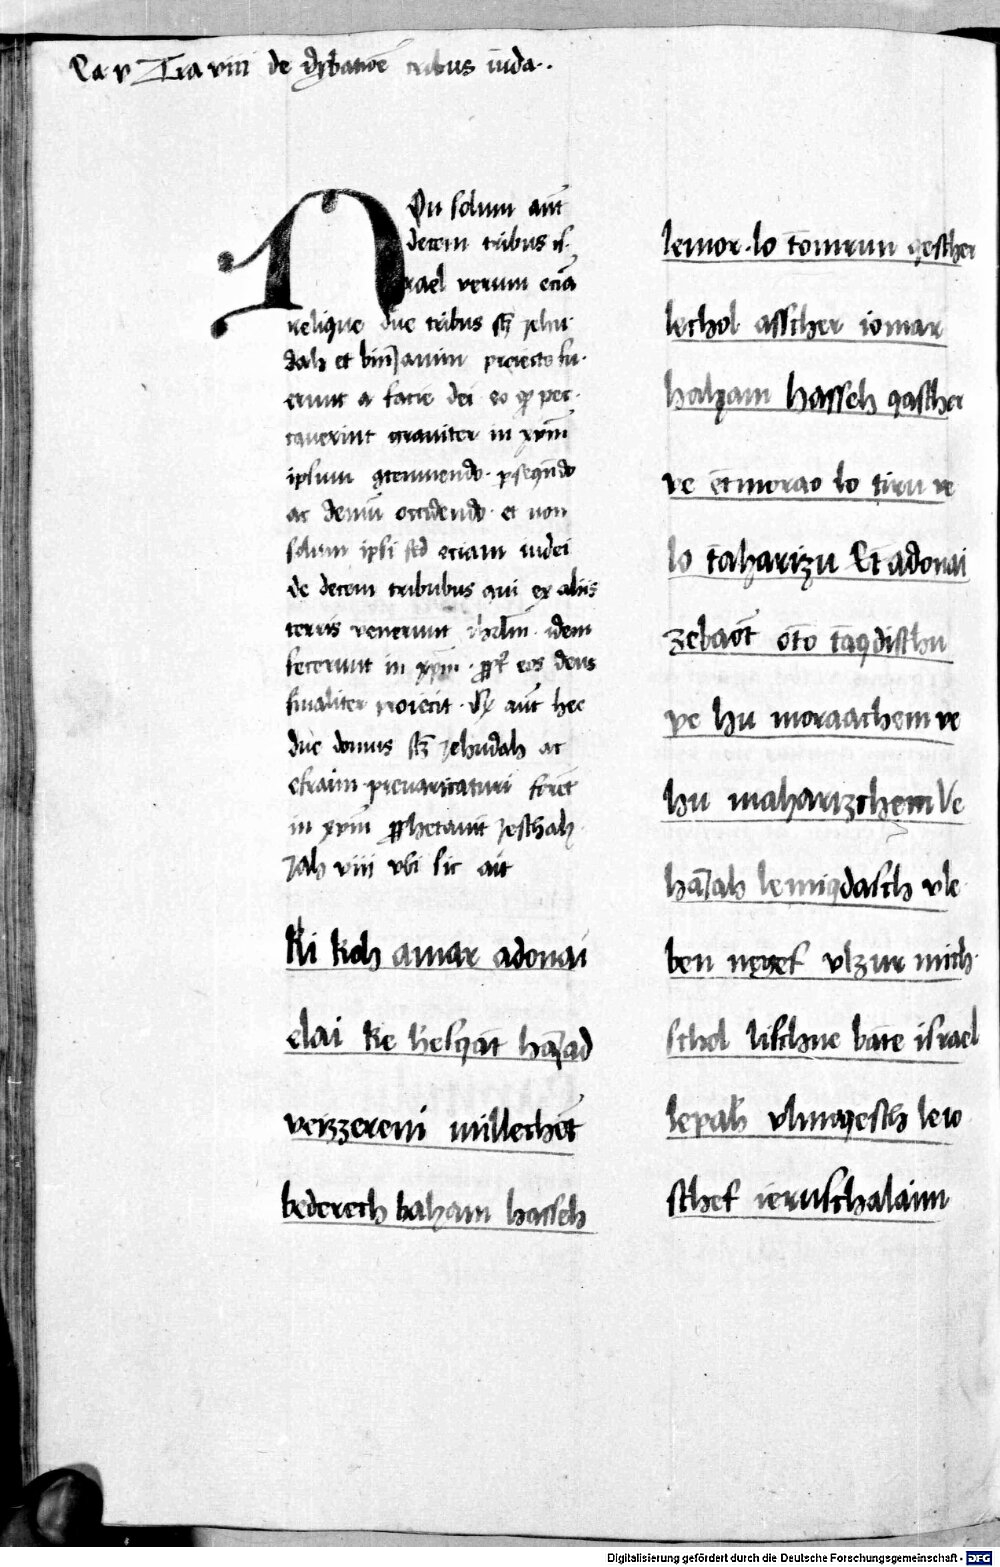 Ca v Tra viii de dysbatiõe tribus iuda..
Non solum aũt
decem tribus is-
rael verum eciã
relique due tribus scz jehu-
dah et binjamin proiecte fu-
erunt a facie dei eo qp pec-
caverint graviter in xpm
ipsum gtemnendo. psequẽdo
ac demũ occidendo. et non
solum ipsi sed eciam iudei
de decem tribubus qui ex aliis
terris venerunt iherlm. idem
fecerunt in xpm. ppt eos deus
finaliter proiecit. Qp aũt hec
due domus scz jehudah ac
efraim prevaricaturi forẽt
in xpm pphetavit jeschah-
jah viii vbi sic ait
ki koh amar adonai
elai ke hesqat hajad
veizzereni millechet
bederech haham hasseh
lemor. lo tomrun qescher
lechol asscher iomar
haham hasseh qascher
ve et morao lo tiru ve
lo taharizu Et adonai
zebaot oto taqdischu
ve hu moraachem ve
hu maharizchem Ve
hajah lemiqdasch vle-
ben negef vlzur mich-
schol lischne bate israel
lepah vlmoqesch leio-
schef ieruschalaim
Digitalisierung gefördert durch die Deutsche Forschungsgemeinschaft - DFG